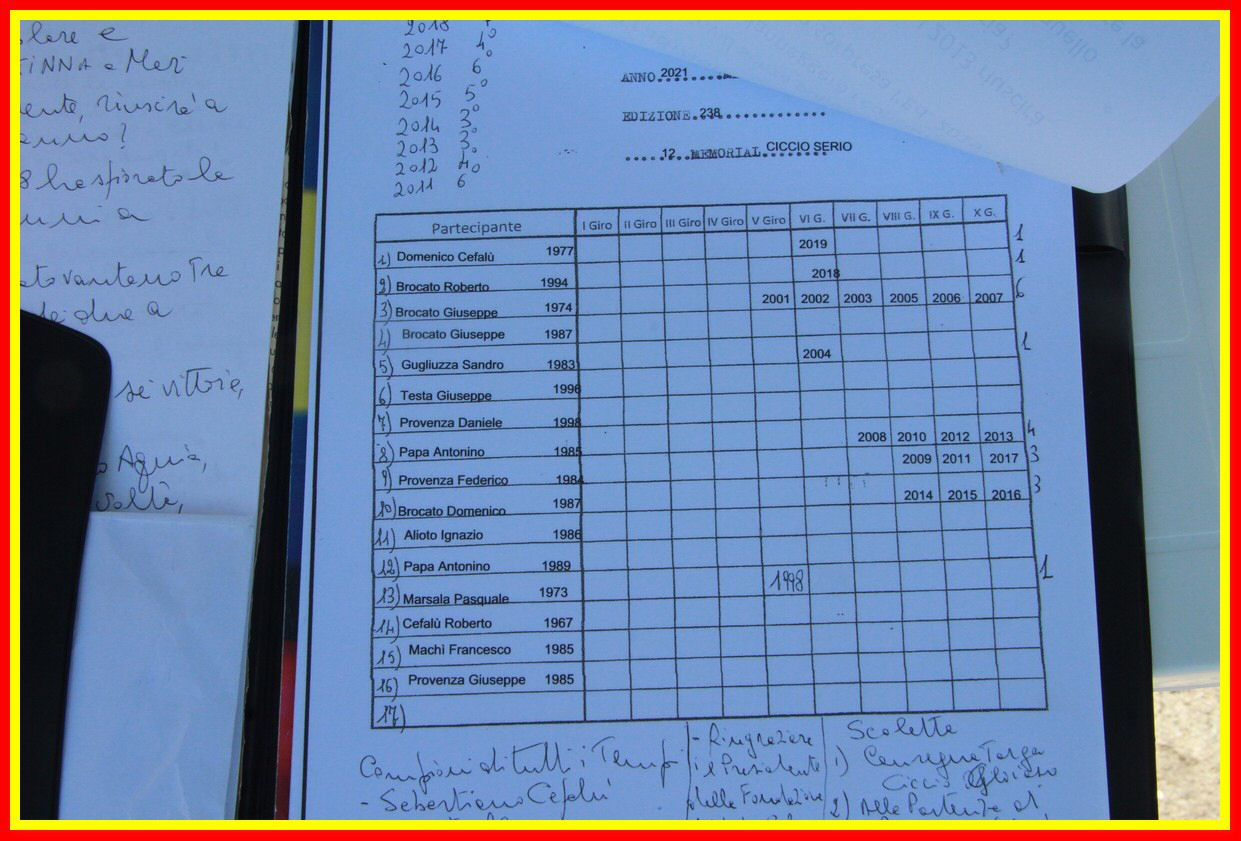 lere e
TINNA e Mez
ente, riuscirà a
anno?
8 ha spirato le
unni a
ato vantano Tre
se vittorie,
Aguià,
volte,
2018
2017 4°
2016 6°
2015 5°
2014 3°
2013 3°
2012 4°
2011 6
ANNO 2021
EDIZIONE 238
12 MEMORIAL CICCIO SERIO
Partecipante I Giro II Giro III Giro IV Giro V Giro VI G. VII G. VIII G. IX G. X G.
1) Domenico Cefalù 1977 2019 1
2) Brocato Roberto 1994 2018 1
3) Brocato Giuseppe 1974 2001 2002 2003 2005 2006 2007 6
4) Brocato Giuseppe 1987
5) Gugliuzza Sandro 1983 2004 1
6) Testa Giuseppe 1996
7) Provenza Daniele 1998
8) Papa Antonino 1985 2008 2010 2012 2013 4
9) Provenza Federico 1984 2009 2011 2017 3
10) Brocato Domenico 1987 2014 2015 2016 3
11) Alioto Ignazio 1986
12) Papa Antonino 1989
13) Marsala Pasquale 1973 1998 1
14) Cefalù Roberto 1967
15) Machì Francesco 1985
16) Provenza Giuseppe 1985
17)
Campioni di tutti i Tempi
- Sebastiano Cefalù
- Ringraziare
il Presidente
della Fondazione
Scaletta
1) Consegna Targa
Ciccio
2) Alla Partenza di